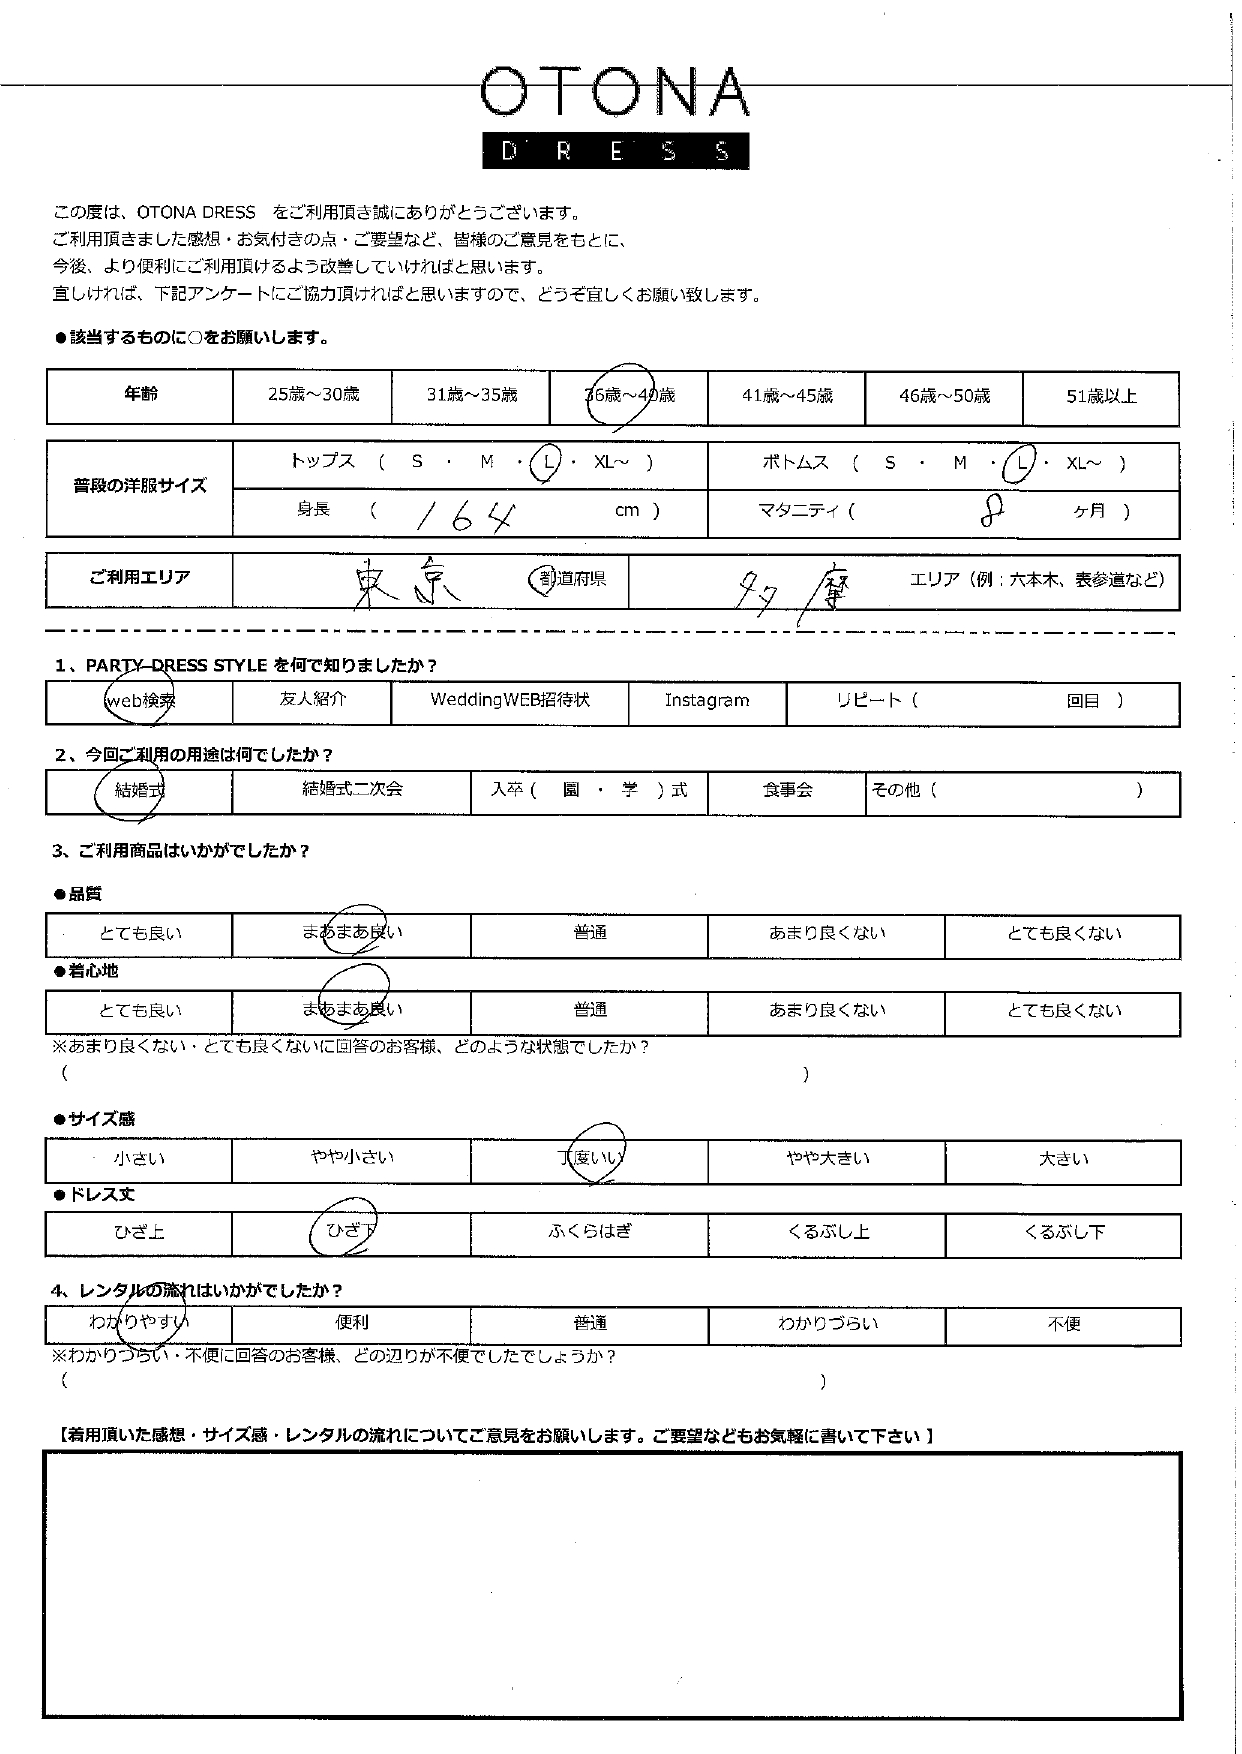 OTONA
DRESS
この度は、OTONA DRESS をご利用頂き誠にありがとうございます。
ご利用頂きました感想・お気付きの点・ご要望など、皆様のご意見をもとに、
今後、より便利にご利用頂けるよう改善していければと思います。
宜しければ、下記アンケートにご協力頂ければと思いますので、どうぞ宜しくお願い致します。
●該当するものに○をお願いします。
年齢 25歳～30歳 31歳～35歳 36歳～40歳 41歳～45歳 46歳～50歳 51歳以上
普段の洋服サイズ トップス ( S ・ M ・ L ・ XL～ ) ボトムス ( S ・ M ・ L ・ XL～ )
身長 ( 164 cm ) マタニティ ( 8 ヶ月 )
ご利用エリア 東京 都道府県 多摩 エリア（例：六本木、表参道など）
1、PARTY DRESS STYLE を何で知りましたか？
web検索 友人紹介 WeddingWEB招待状 Instagram リピート ( 回目 )
2、今回ご利用の用途は何でしたか？
結婚式 結婚式二次会 入卒 ( 園 ・ 学 ) 式 食事会 その他 ( )
3、ご利用商品はいかがでしたか？
●品質
とても良い まあまあ良い 普通 あまり良くない とても良くない
●着心地
とても良い まあまあ良い 普通 あまり良くない とても良くない
※あまり良くない・とても良くないに回答のお客様、どのような状態でしたか？
( )
●サイズ感
小さい やや小さい 丁度いい やや大きい 大きい
●ドレス丈
ひざ上 ひざ下 ふくらはぎ くるぶし上 くるぶし下
4、レンタルの流れはいかがでしたか？
わかりやすい 便利 普通 わかりづらい 不便
※わかりづらい・不便に回答のお客様、どの辺りが不便でしたでしょうか？
( )
【着用頂いた感想・サイズ感・レンタルの流れについてご意見をお願いします。ご要望などもお気軽に書いて下さい】